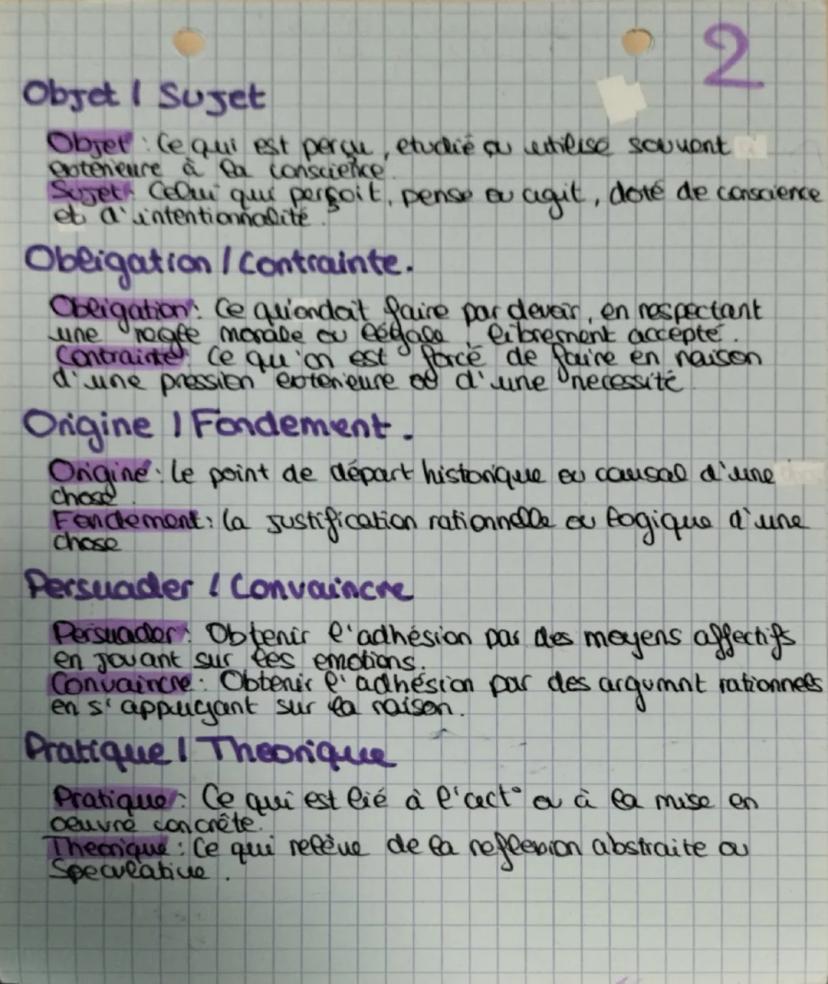 2
Objet / Sujet
Objet : Ce qui est perçu, etudié ou utilisé souvent
exterieure à la conscience
Sujet : Celui qui perçoit, pense ou agit, doté de conscience
et d'intentionnalité.
Obligation / Contrainte.
Obligation : Ce qu'on doit faire par devoir, en respectant
une règle morale ou légale, librement accepté.
Contrainte : Ce qu'on est forcé de faire en raison
d'une pression exterieure ou d'une necessité
Origine / Fondement.
Origine : le point de départ historique ou causal d'une
chose.
Fondement : la justification rationnelle ou logique d'une
chose
Persuader / Convaincre
Persuader : Obtenir l'adhésion par des moyens affectifs
en jouant sur les emotions.
Convaincre : Obtenir l'adhésion par des argumnt rationnels
en s'appuyant sur la raison.
Pratique / Theorique
Pratique : Ce qui est lié à l'act° ou à la mise en
oeuvre concrète.
Theorique : Ce qui relève de la reflexion abstraite ou
Speculative.